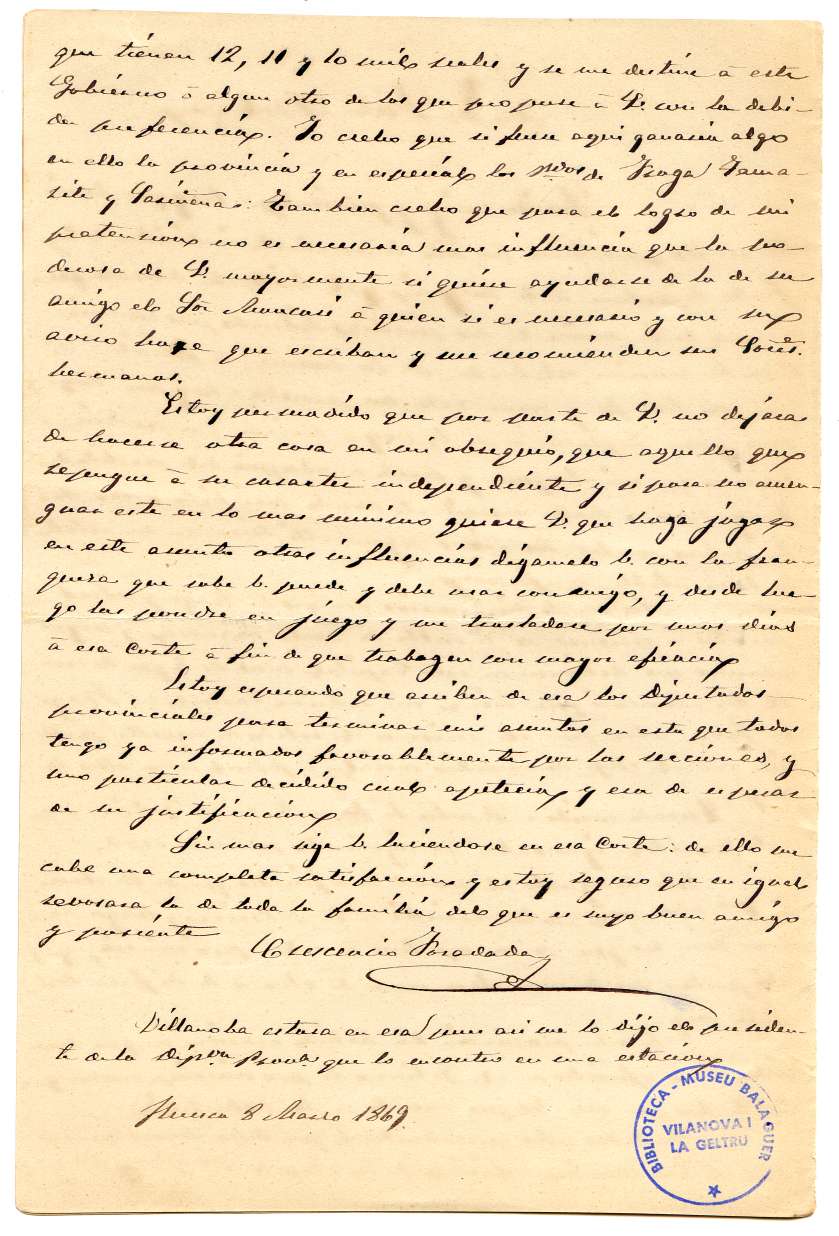 que tienen 12, 11 y 10 mil reales y se me destine á este
Gobierno ó algun otro de los que propuse á V. con la debi-
da preferencia. Yo creho que si fuese aqui ganaria algo
en ello la provincia y en especial los ptdos de Fraga Tama-
rite y Sariñena: Tambien creho que para el logro de mi
pretension no es necesaria mas influencia que la po-
derosa de V. mayormente si quiere ayudarse de la de su
amigo el Sor Moncasi á quien si es necesario y con su
aviso hare que escriban y me recomienden sus Sores.
hermanos.
Estoy persuadido que por parte de V. no dejara
de hacerse otra cosa en mi obsequio, que aquello que
repugne á su caracter independiente y si para no amen-
guar este en lo mas minimo quiere V. que haga jugar
en este asunto otras influencias digamelo V. con la fran-
queza que sabe V. puede y debe usar conmigo, y desde lue-
go las pondre en juego y me trasladare por unos dias
á esa Corte á fin de que trabagen con mayor eficacia
Estoy esperando que arriben de esa los Diputados
provinciales para terminar mis asuntos en esta que todos
tengo ya informados favorablemente por las secciones, y
uno particular decidido cual apetecia y era de esperar
de su justificacion
Sin mas siga V. luciendose en esa Corte: de ello me
cabe una completa satisfaccion y estoy seguro que en igual
rebosara la de toda la familia del que es suyo buen amigo
y pariente
Crescencio Foradada
Villanoba estara en esa pues asi me lo dijo el presiden-
te de la Dipon Provl que lo encontro en una estacion
Huesca 8 Marzo 1869.
BIBLIOTECA - MUSEU BALAGUER
VILANOVA I
LA GELTRÚ